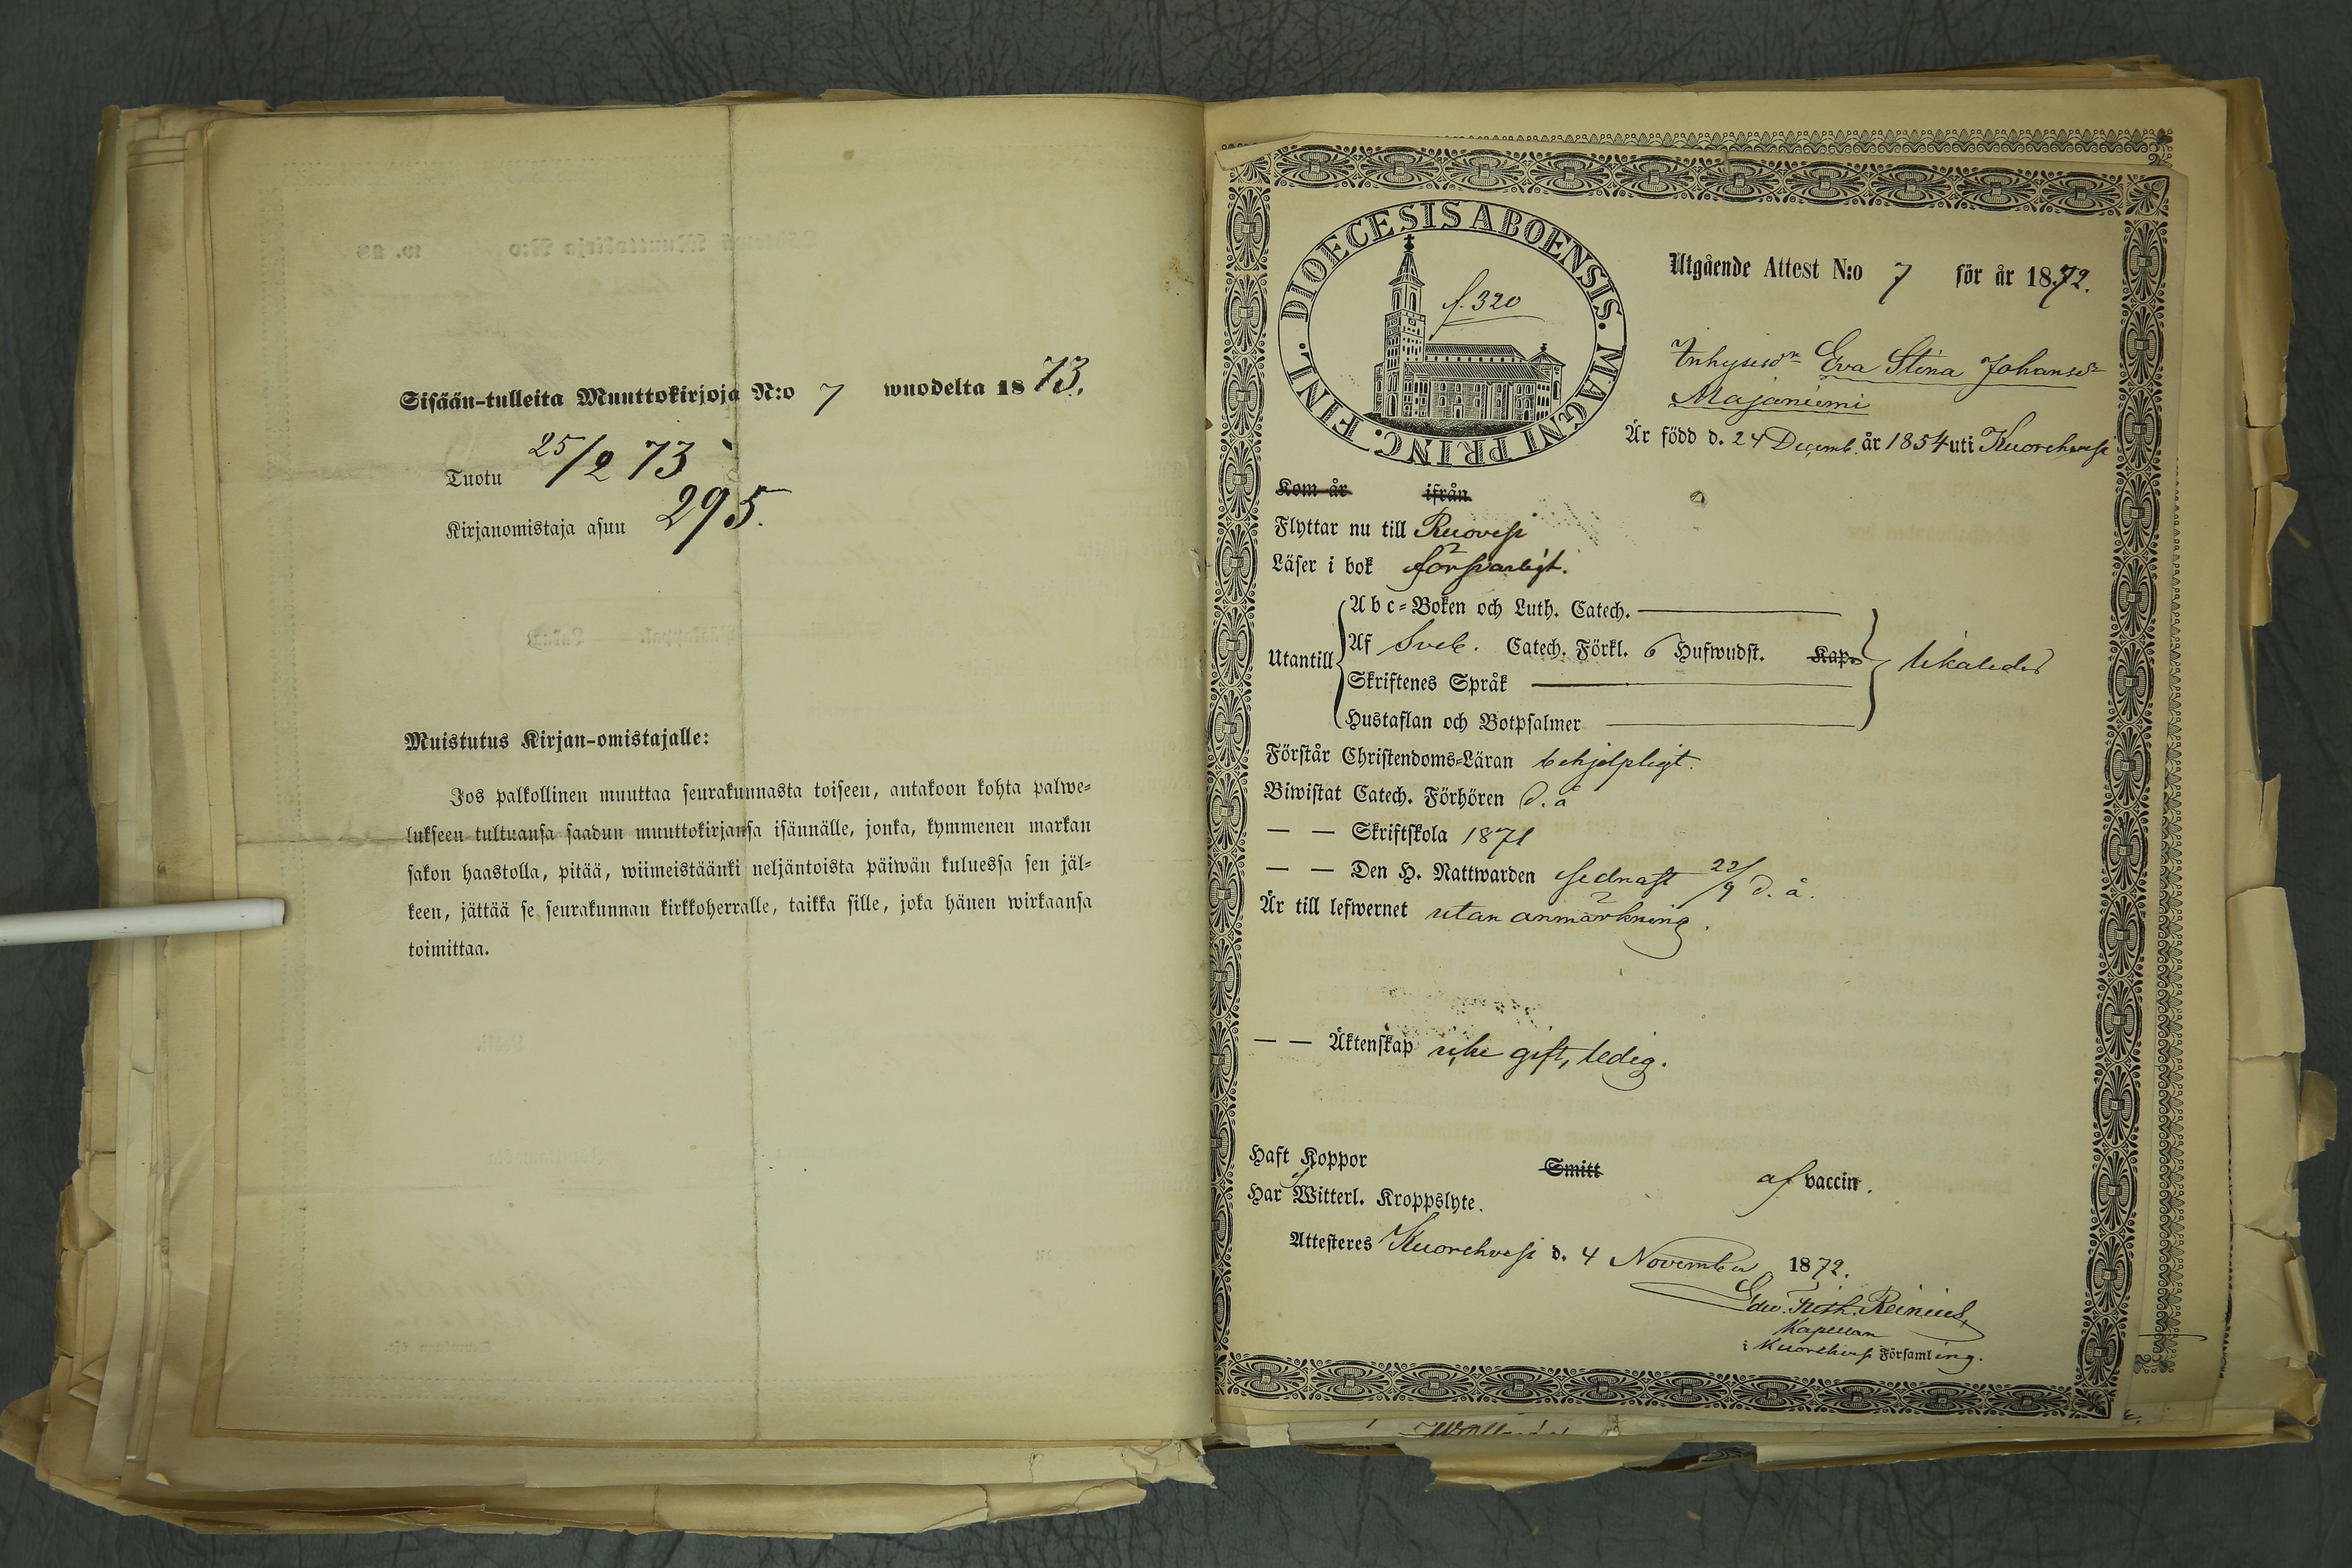 Sisään-tulleita Muuttokirjoja N:o 7 wuodelta 1873.
Tuotu 25/2 73
Kirjanomistaja asuu 295.
Muistutus Kirjan-omistajalle:
Jos palkollinen muuttaa seurakunnasta toiseen, antakoon kohta palwe-
lukseen tultuansa saadun muuttokirjansa isännälle, jonka, kymmenen markan
sakon haastolla, pitää, wiimeistäänki neljäntoista päiwän kuluessa sen jäl-
keen, jättää se seurakunnan kirkkoherralle, taikka sille, joka hänen wirkaansa
toimittaa.
DIOECESIS ABOENSIS. MAGNI PRINC. FINL.
f. 320
Utgående Attest N:o 7 för år 1872.
Inhysesdr Eva Stina Johansdr
Majaniemi
Är född d. 24 Decemb. år 1854 uti Kuorehvesi
Kom år ifrån
Flyttar nu till Ruovesi
Läser i bok försvarligt.
Abc-Boken och Luth. Catech.
Utantill Af Sveb. Catech. Förkl. 6 Hufwudst. Kap. likaledes
Skriftenes Språk
Hustaflan och Botpsalmer
Förstår Christendoms-Läran behjelpligt.
Biwistat Catech. Förhören d. å
— — Skriftskola 1871
— — Den H. Nattwarden sednast 22/9 d. å.
Är till lefwernet utan anmärkning.
— — Äktenskap icke gift, ledig.
Haft Koppor Smitt af vaccin.
Har ej Witterl. Kroppslyte.
Attesteres Kuorehvesi d. 4 November 1872.
Edw. Reinius,
Kapellan
i Kuorehvesi Församling.